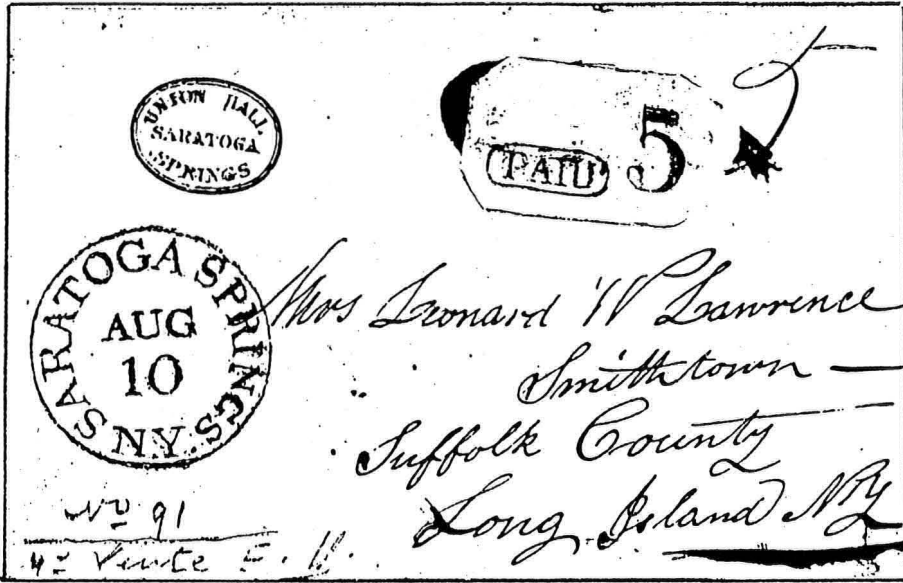 UNION HALL
SARATOGA
SPRINGS
PAID 5
SARATOGA SPRINGS N.Y.
AUG
10
Mrs Leonard W Lawrence
Smithtown —
Suffolk County
Long Island NY
No 91
4e Vente E.